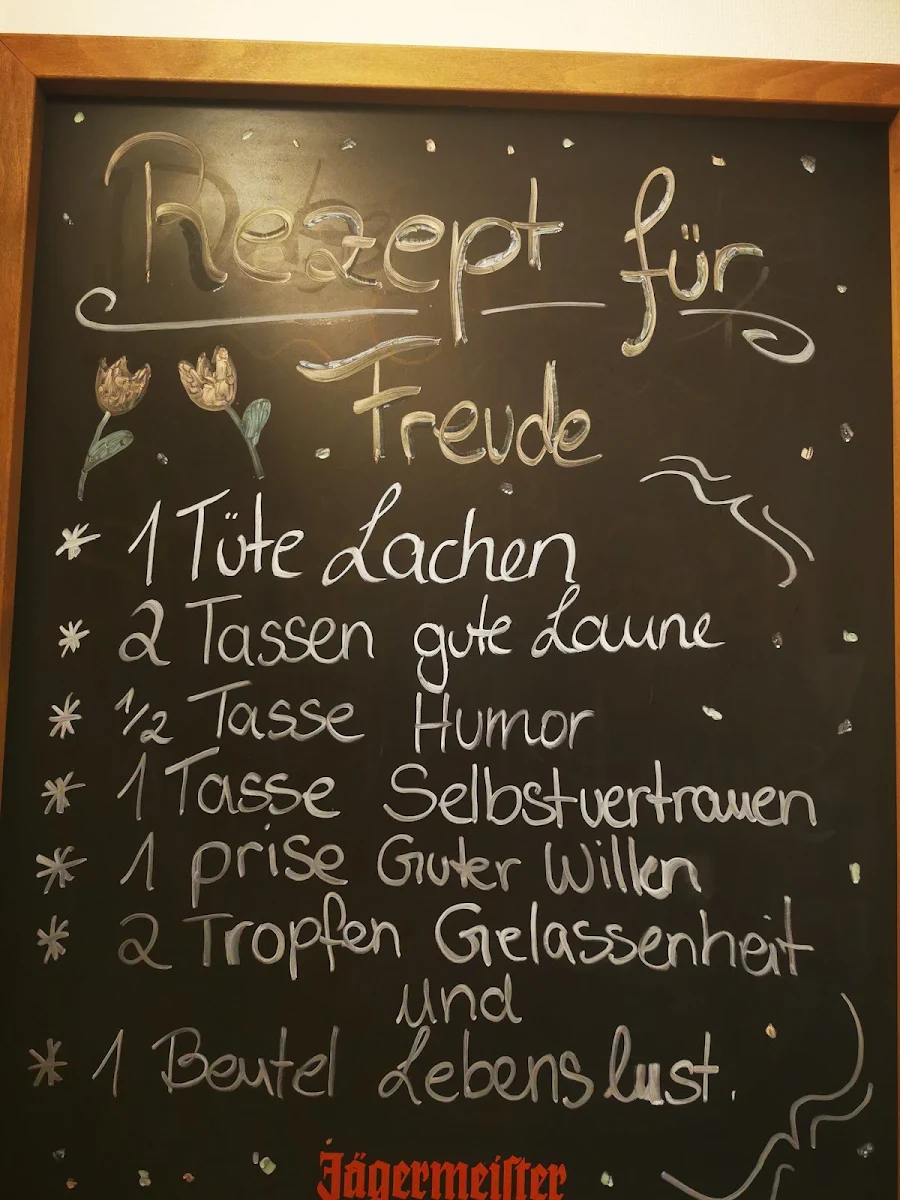 Rezept für
Freude
* 1 Tüte Lachen
* 2 Tassen gute Laune
* 1/2 Tasse Humor
* 1 Tasse Selbstvertrauen
* 1 prise Guter Willen
* 2 Tropfen Gelassenheit
und
* 1 Beutel Lebenslust.
Jägermeister